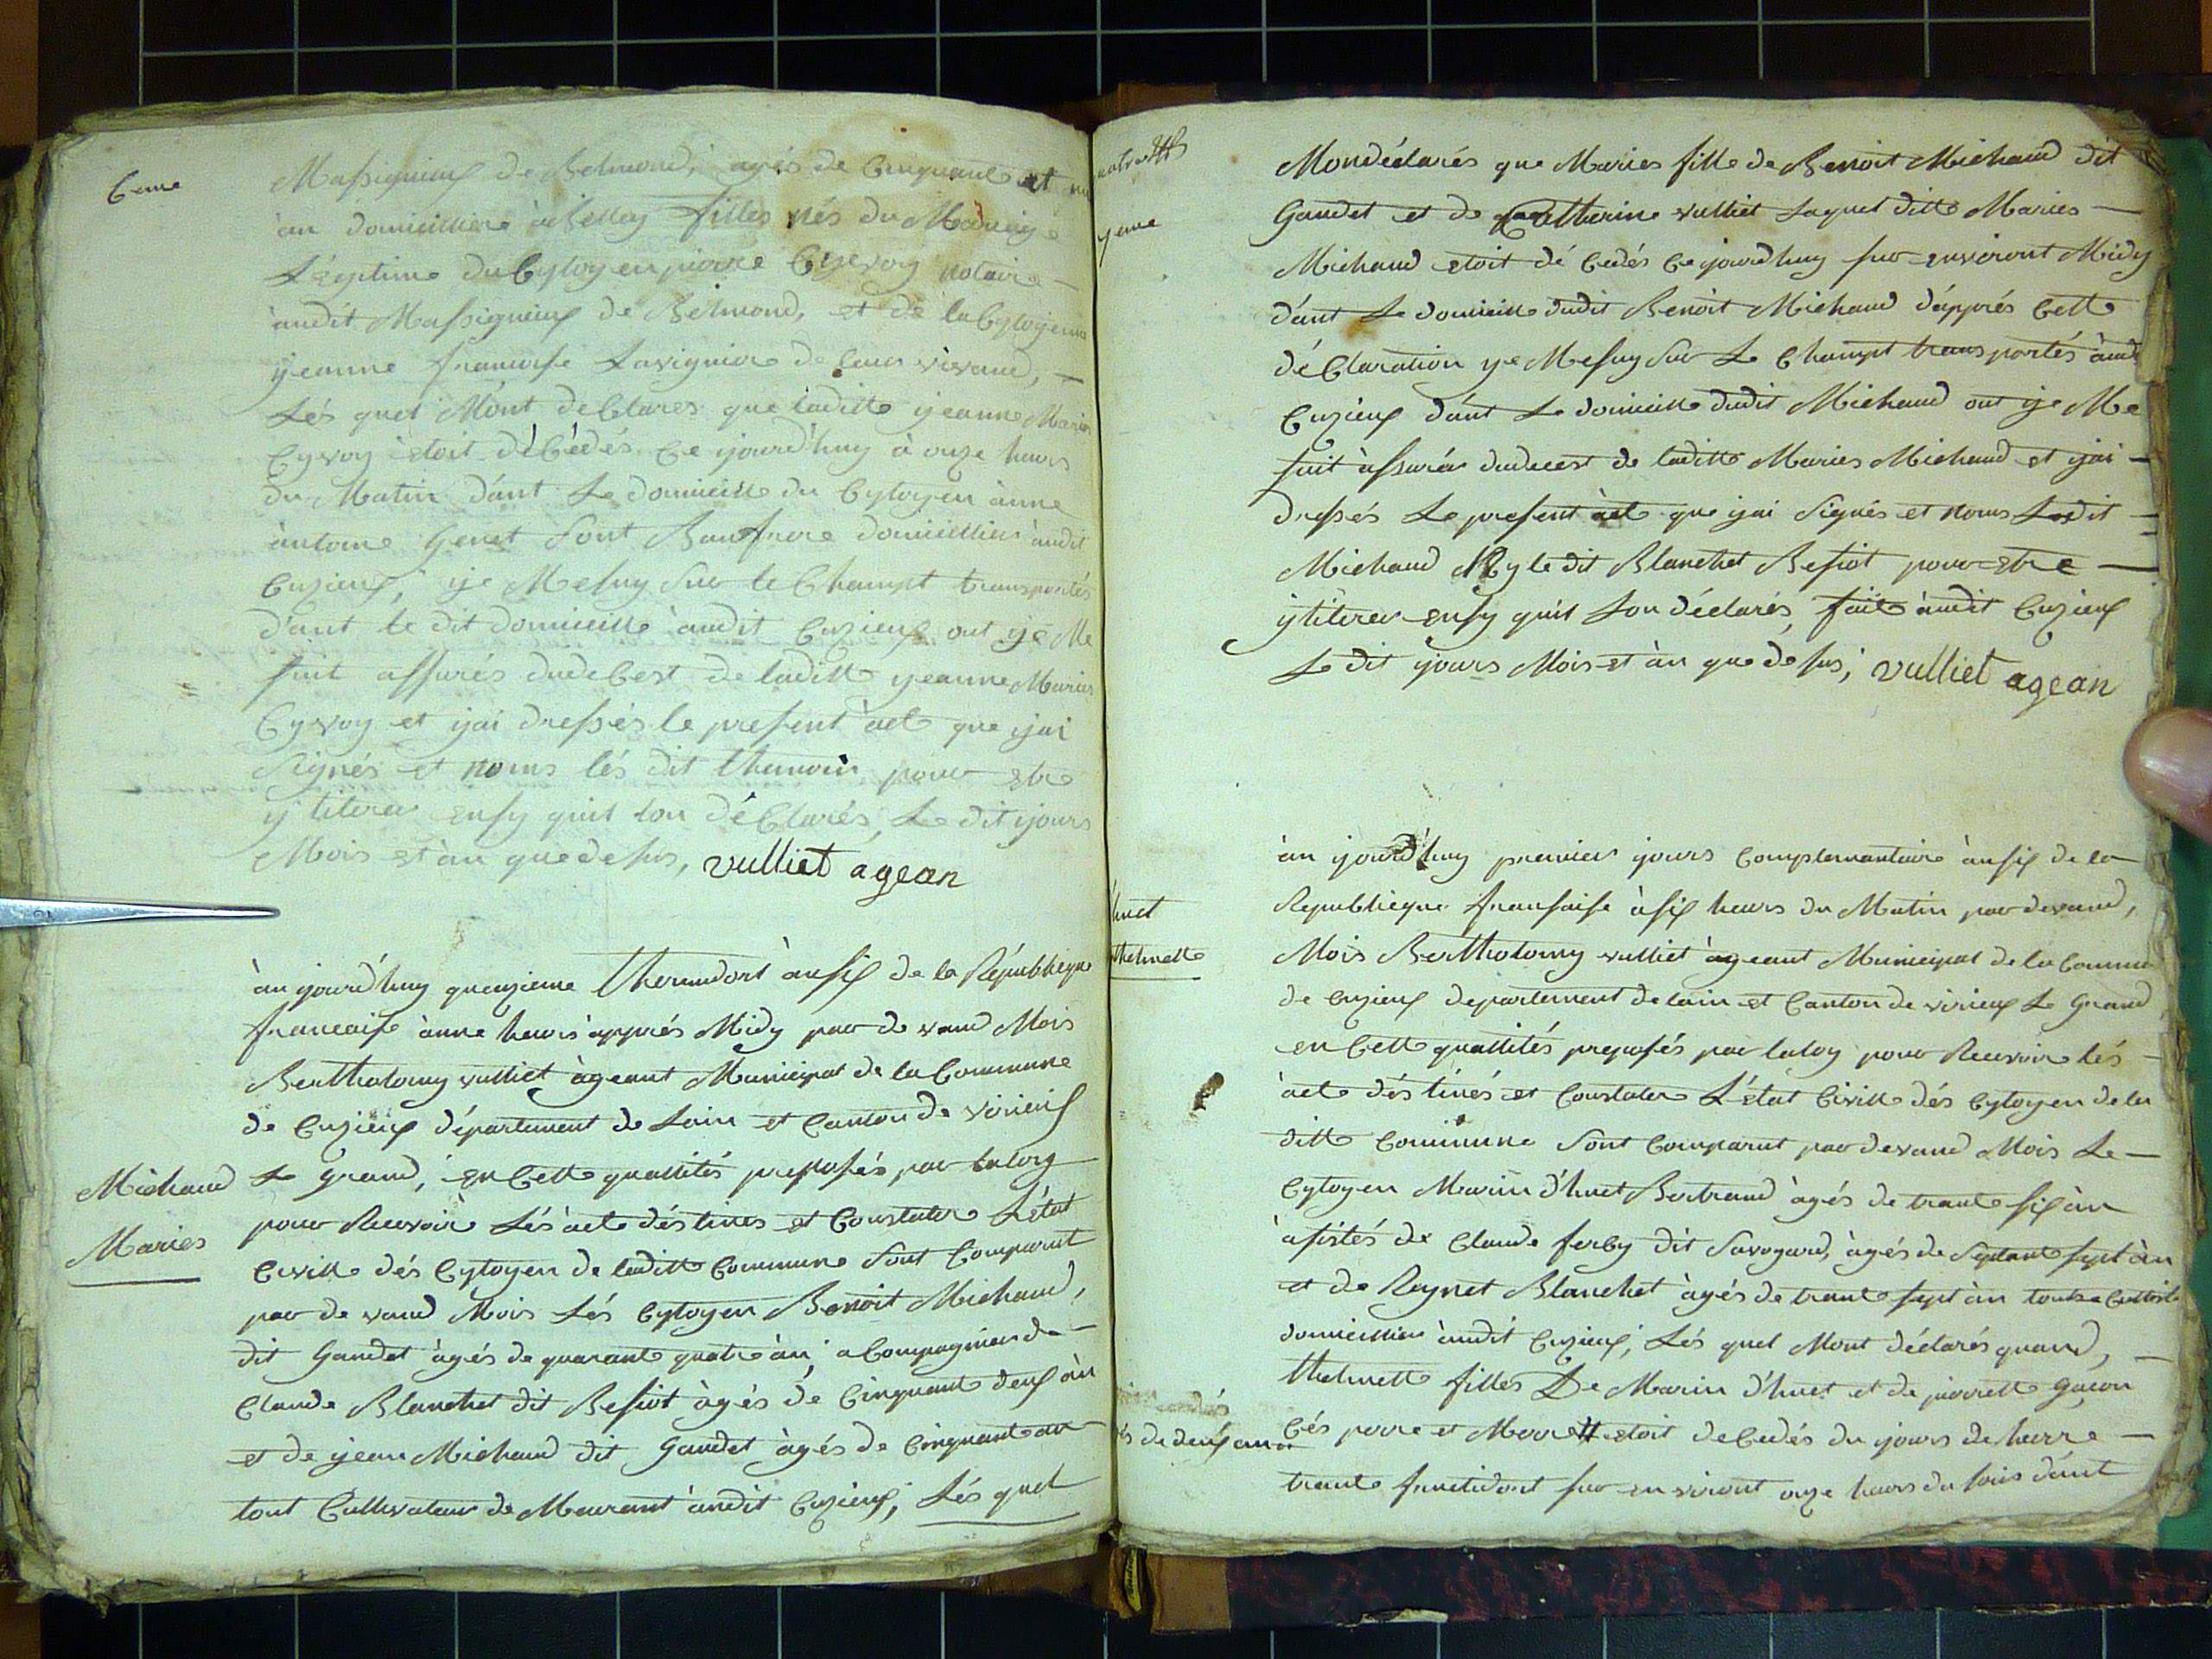 6eme
Massignieux de Belmond, agés de Cinquante et un
àn domicilliéé à Belley filles nés du Mariage
Légitime du Cytoyen pierre Cyvoy notaire
àudit Massignieux de Belmond, et de la Cytoyenne
yeanne francoise Lavignier de leur vivand,
Lés quel Mónt declarés que laditte yeanne Maries
Cyvoy ètoit décédés Ce yjourd'huy à onze heurs
du Matin dánt Le domicille du Cytoyen ànne
àntoine Genet Sont Baufrere domicillier àudit
Cuzieux, ije Mesuy Sur le Champt transportés
dánt le dit domicille àudit Cuzieux out ije Me
suit assurés dudecest de laditte yeanne Maries
Cyvoy et ijai dressés le present àcte que ijai
Signés et noms lés dit themoin pour etre
ytiterer ensy quil lon déClarés, Le dit ijours
Mois et àn que desus, vulliet agean
Michaud
Maries
àn ijourd'huy quenzieme thermidort àn six de la Républieque
francaise ànne heurs apprés Midy par de vand Mois
Bertholomy vulliet àgeant Municipal de la Commune
de Cuzieux département de Lain et Canton de virieux
Le grand, en Cette quallités preposés par laloy
pour Recevoir Lés àcte déstinés et Constater L'état
Civille dés Cytoyen de laditte Commune Sont Comparut
par de vand Mois Lés Cytoyen Benoit Michaud,
dit Gaudet àgés de quarante quatre àn, a Compagnier de
Claude Blanchet dit Besiot àgés de Cinquante deux àn
et de yean Michaud dit Gaudet àgés de Cinquante an
tout Cultivateur de Meurant àudit Cuzieux, Lés quel
yeme
Mondéclarés que Maries fille de Benoit Michaud dit
Gaudet et de Catherine vulliet Laquel ditte Maries
Michaud etoit dé Cedés Ce ijourd'huy sur environt Midy
dánt Le domicille dudit Benoit Michaud dápprés Cette
déClaration ije Mesuy Sur Le Champt transportés àudit
Cuzieux dánt Le domicille dudit Michaud out ije Me
suit àssurér dudecest de laditte Maries Michaud et ijai
dressés Le present àcte que ijai Signés et noms Ledit
Michaud Ny le dit Blanchet Besiot pour etre
ytiterer ensy quil Lon déclarés, fait àudit Cuzieux
Le dit ijours Mois et àn que desus, vulliet agean
huet
thelmette
àn ijourd'huy premier ijours Complementaire àn six de la
Republieque fransaise àsix heurs du Matin par devand,
Mois Bertholomy vulliet àgeant Municipal de la Commune
de Cuzieux departement de lain et Canton de virieux Le Grand
en Cette quallités preposés par laloy pour Recevoir lés
àcte déstinés et Constater L'état Civille dés Cytoyen de la
ditte Commune Sont Comparut par devand Mois Le
Cytoyen Marin d'huet Bertrand àgés de trante six àn
àsistés de Claude ferby dit Savoyard, àgés de Septante sept àn
et de Reynet Blanchet àgés de trante sept àn
domicillier àudit Cuzieux, Lés quel Mont déclarés quand,
thelmette filles De Marin d'huet et de pierrette Gucon
és de deux ans
Cés perre et Merre etoit deCedés du ijours de herre
trante fructidort sur environt onze heurs du soir dánt